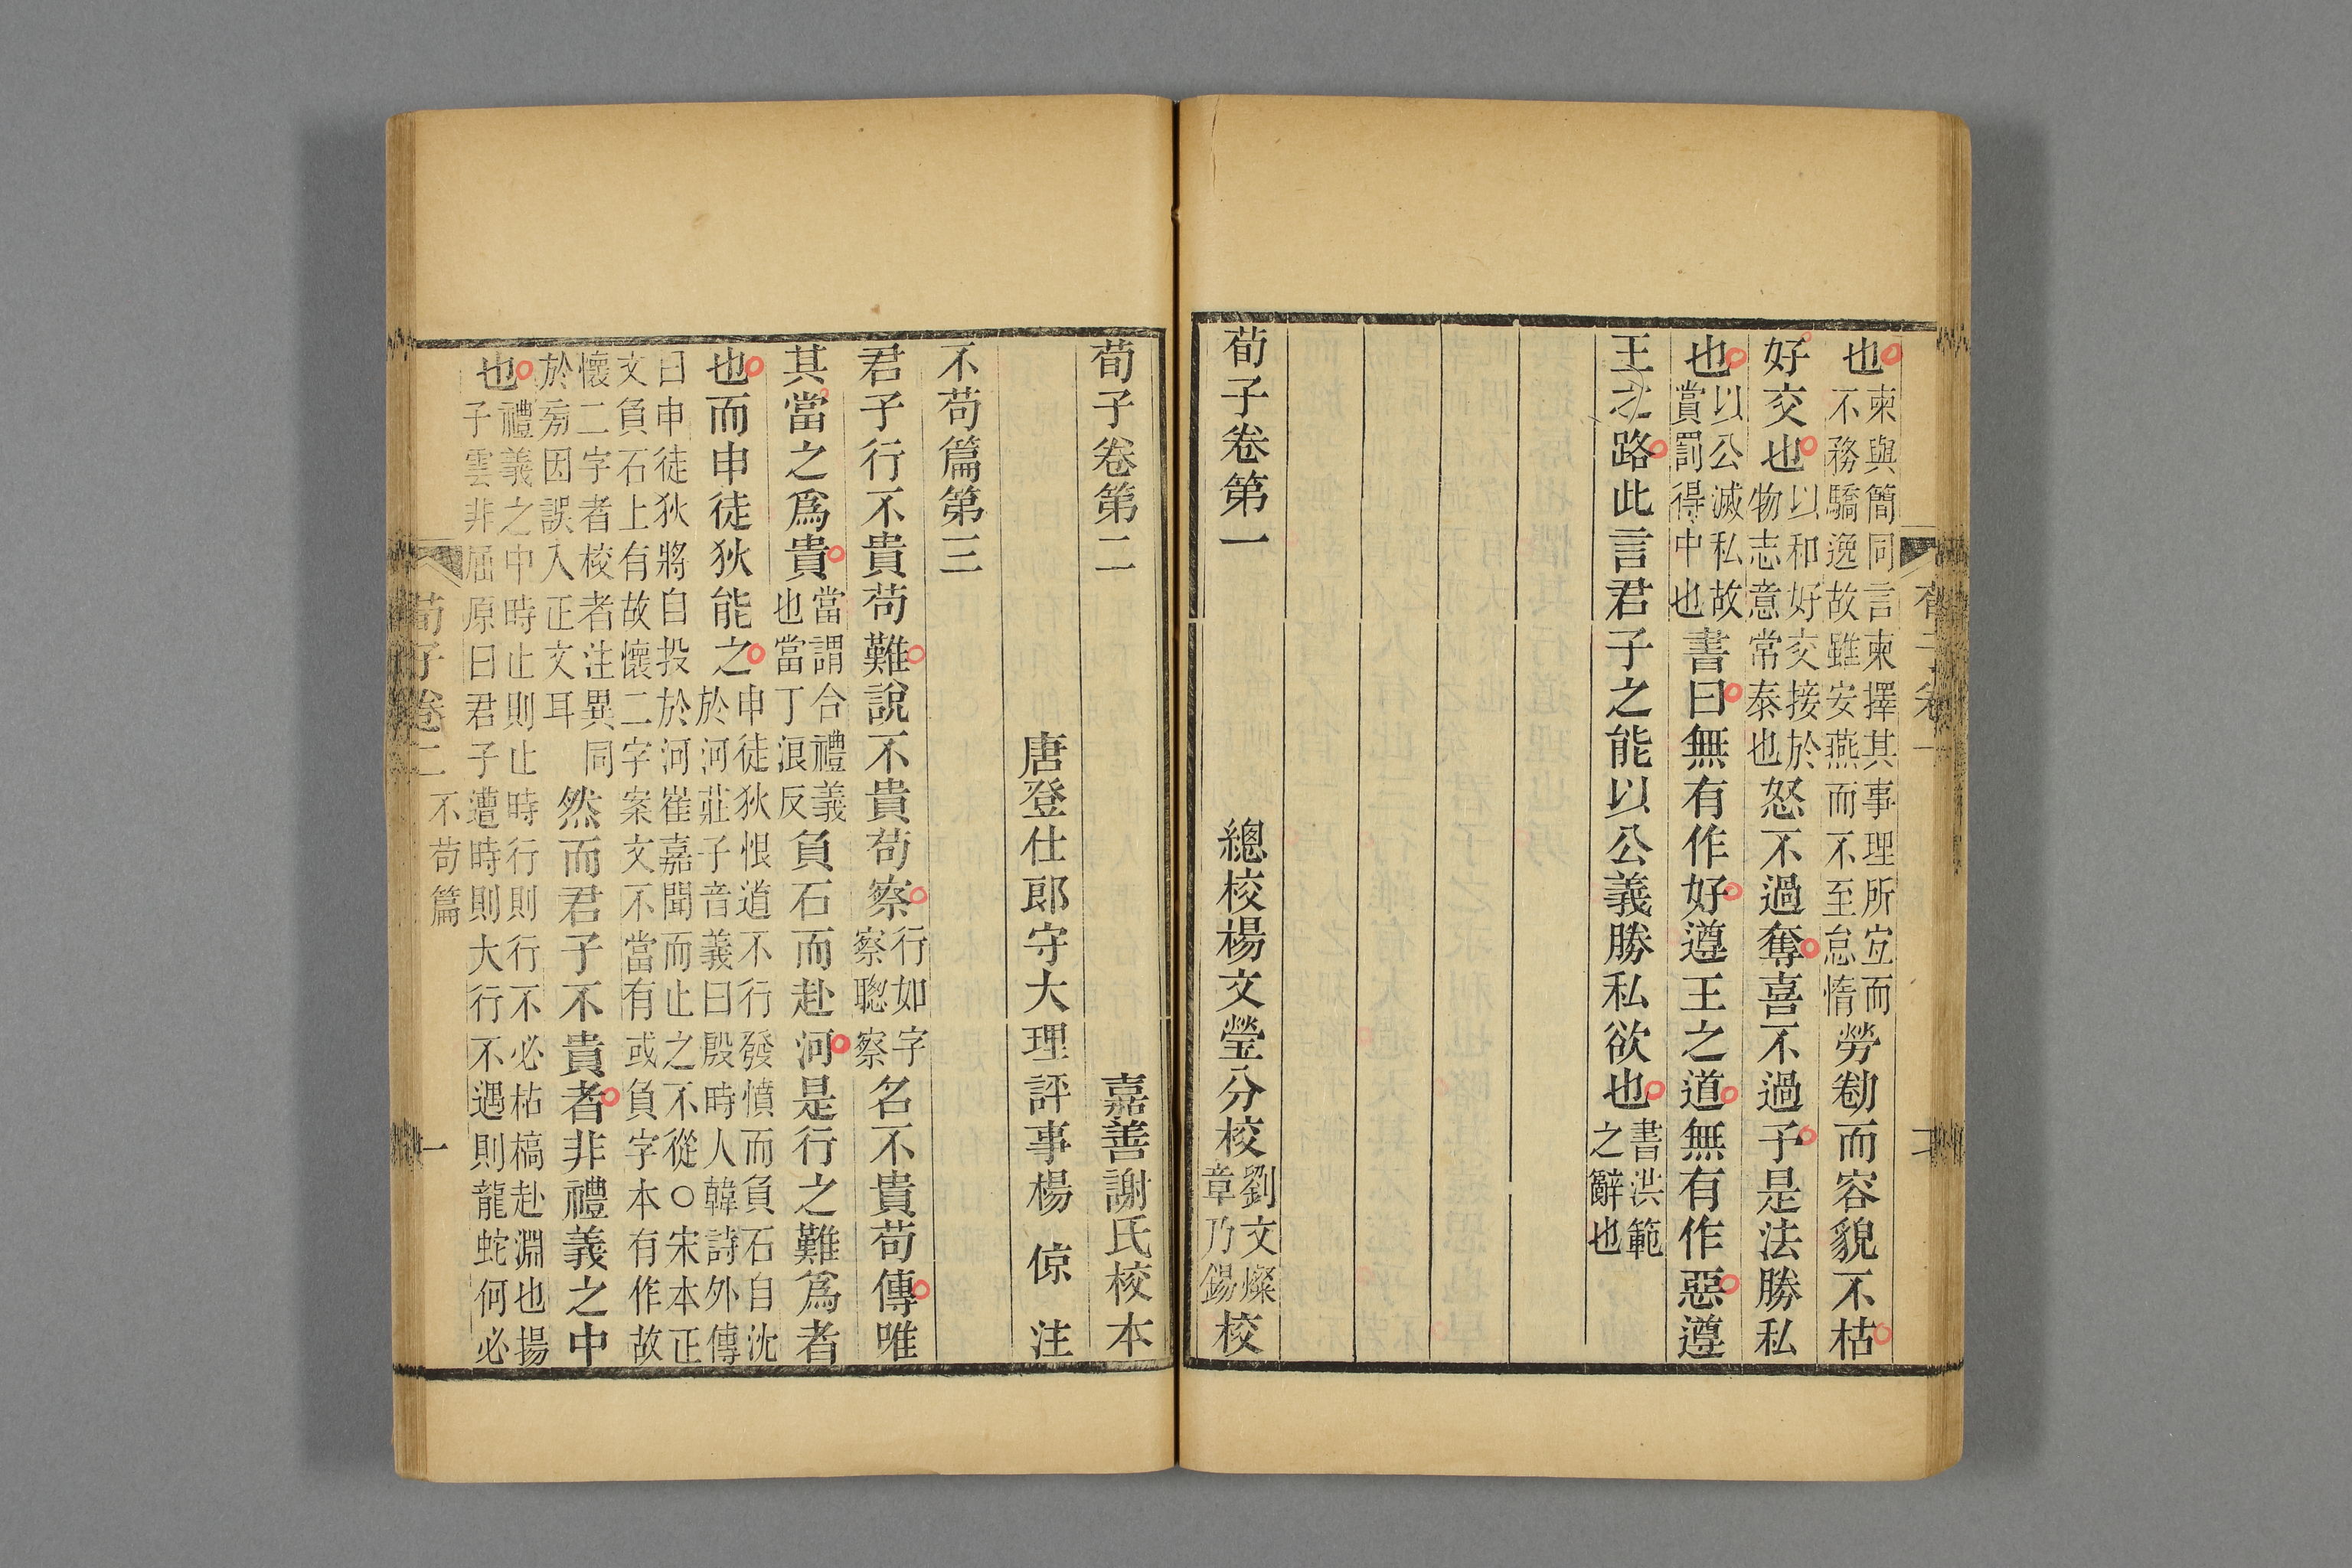 也柬與簡同言柬擇其事理所宜而不務驕逸故雖安燕而不至怠惰勞勌而容貌不枯
好交也以和好交接於物志意常泰也怒不過奪喜不過予是法勝私
也以公滅私故賞罰得中也書曰無有作好遵王之道無有作惡遵
王之路此言君子之能以公義勝私欲也書洪範之辭也
荀子卷第一 總校楊文瑩分校劉文燦章乃錫校
荀子卷第二 嘉善謝氏校本
唐登仕郎守大理評事楊 倞 注
不苟篇第三
君子行不貴苟難說不貴苟察行如字察聰察名不貴苟傳唯
其當之爲貴當謂合禮義也當丁浪反負石而赴河是行之難爲者
也而申徒狄能之申徒狄恨道不行發憤而負石自沈於河莊子音義曰殷時人韓詩外傳
曰申徒狄將自投於河崔嘉聞而止之不從○宋本正文負石上有故懷二字案文不當有或負字本有作故
懷二字者校者注異同於旁因誤入正文耳然而君子不貴者非禮義之中
也禮義之中時止則止時行則行不必枯槁赴淵也揚子雲非屈原曰君子遭時則大行不遇則龍蛇何必
荀子卷二 不苟篇 一